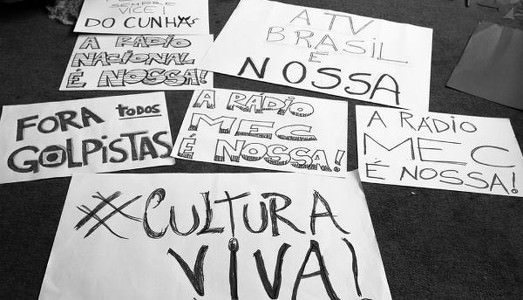 SEMPRE
VICE!
DO CUNHAS
A TV
BRASIL
É
NOSSA
A RÁDIO
NACIONAL
É NOSSA!
FORA todos
GOLPISTAS
A RÁDIO
MEC
É NOSSA!
A RÁDIO
MEC
É NOSSA!
#CULTURA
VIVA!